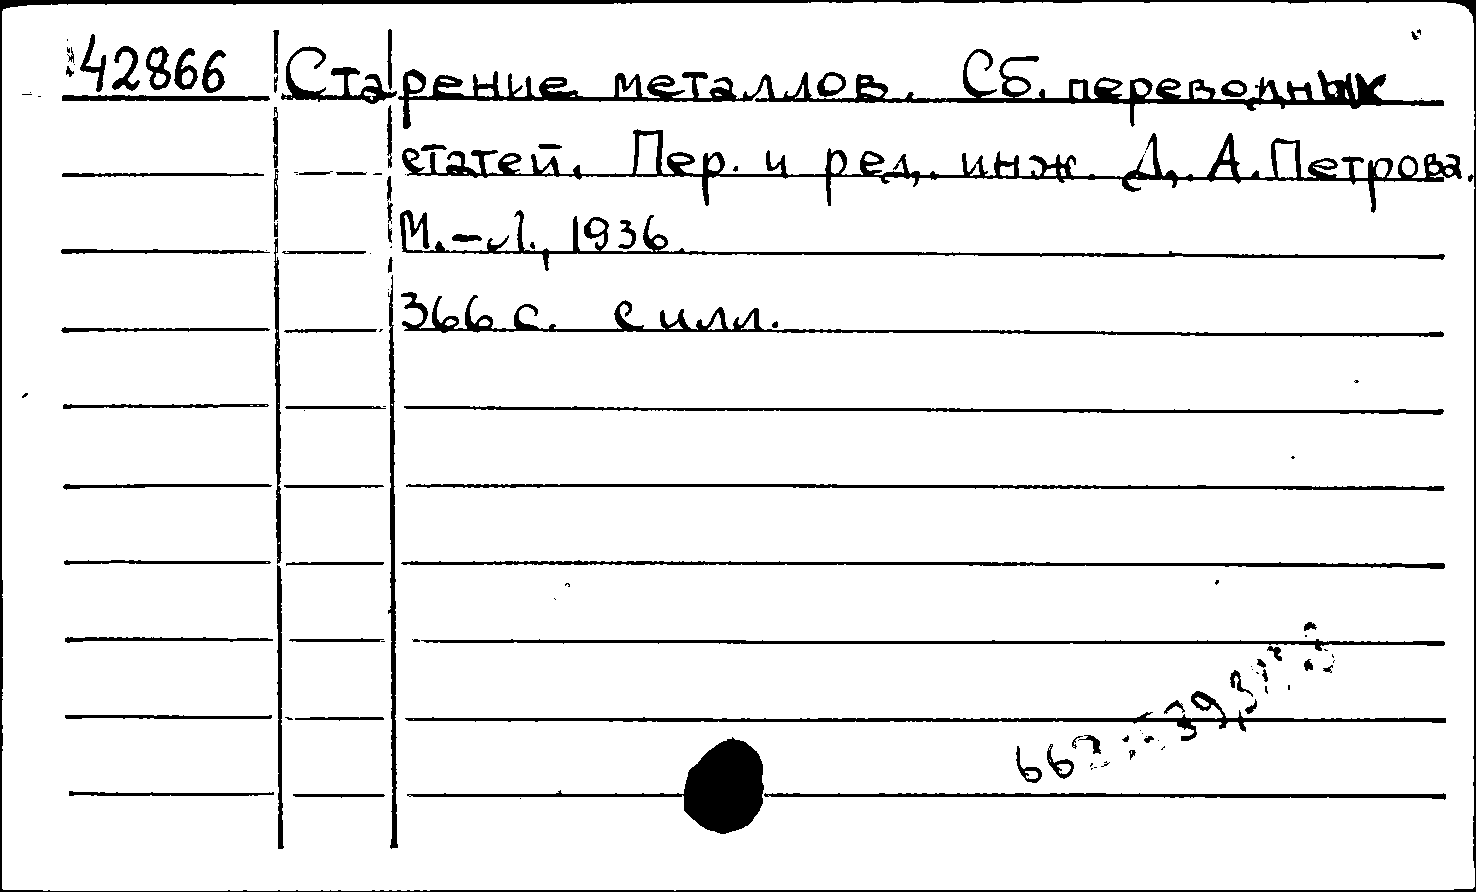 42866 Старение металлов. Сб. переводных
статей. Пер. и ред. инж. Д. А. Петрова.
М.-Л., 1936.
366 с. с илл.